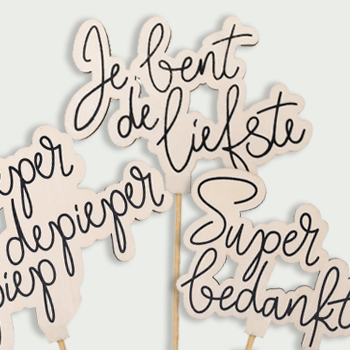 Je bent
de liefste
depieper
Super
bedankt